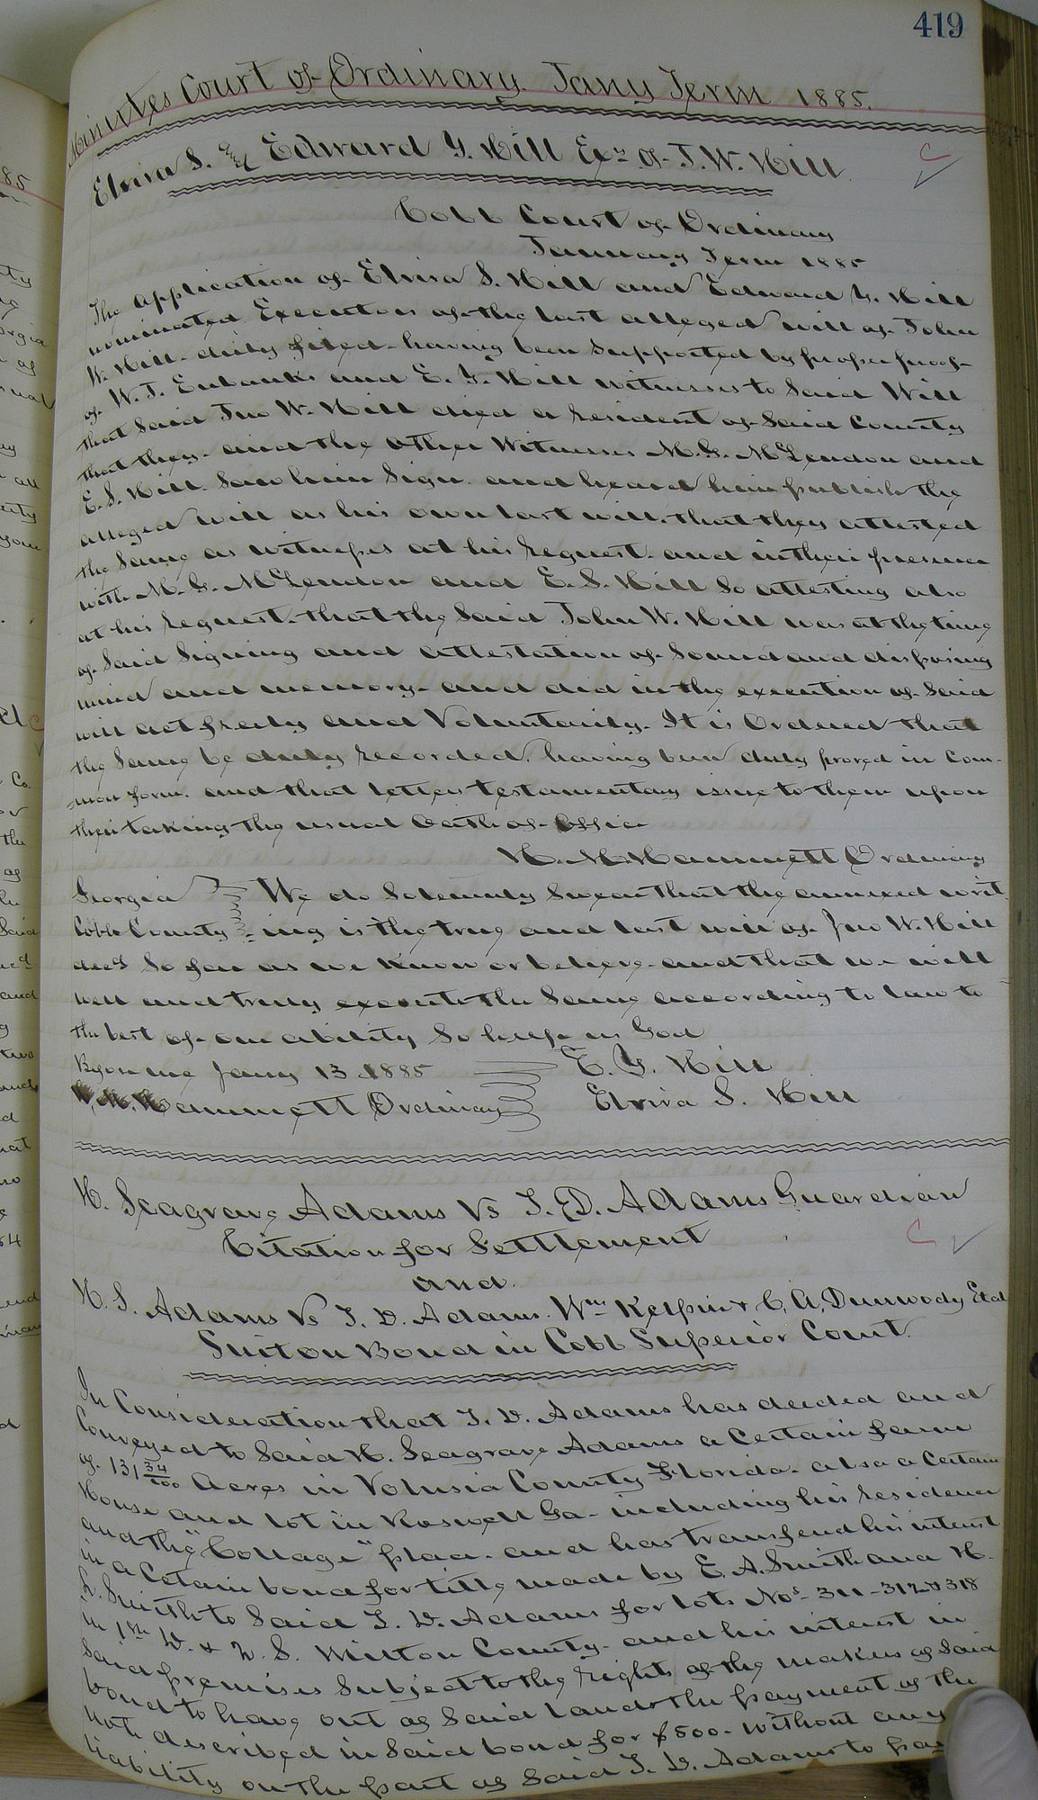 419
Minutes Court of Ordinary. Jany Term 1885.
Elvira S. and Edward Y. Hill Exrs of J. W. Hill
Cobb Court of Ordinary
January Term 1885
The application of Elvira S. Hill and Edward Y. Hill
nominated Executors of the last alleged will of John
W. Hill duly filed having been supported by proper proof
of W. J. Eubanks and E. Y. Hill witnesses to said Will
that said Jno W. Hill died a resident of said County
that they and the other Witnesses M. G. McLendon and
E. S. Hill saw him sign and heard him publish the
alleged will as his own last will, that they attested
the same as witnesses at his request and in their presence
with M. G. McLendon and E. S. Hill so attesting also
at his request. that the said John W. Hill was at the time
of said signing and attestation of sound and disposing
mind and memory and did in the execution of said
will act freely and Voluntarily. It is Ordered that
the same be duly recorded, having been duly proved in Com-
mon form. and that letters testamentary issue to them upon
their taking the usual Oath of Office
H. M. Hammett Ordinary
Georgia We do solemnly swear that the annexed writ
Cobb County ing is the true and last will of Jno W. Hill
decd so far as we know or believe and that we will
well and truly execute the same according to law to
the best of our ability so help us God
Before me Jany 13 1885 E. Y. Hill
H. M. Hammett Ordinary Elvira S. Hill
H. Seagrave Adams Vs T. D. Adams Guardian
Citation for Settlement
and
H. S. Adams Vs T. D. Adams. Wm Kelpin & C. A. Dunwody Et al
Suit on Bond in Cobb Superior Court.
In Consideration that T. D. Adams has deeded and
Conveyed to said H. Seagrave Adams a Certain farm
of 131 34/100 Acres in Volusia County Florida. also a Certain
House and lot in Roswell Ga. including his residence
and the "Cottage" place. and has transfered his interest
in a Certain bond for title made by E. A. Smith and H.
Smith to said T. D. Adams for lots Nos 311-312 & 318
in 1st D. & 2. S. Milton County. and his interest in
said premises subject to the rights of the makers of said
bond to have out of said lands the payment of the
note described in said bond for $500. without any
liability on the part of said T. D. Adams to pay